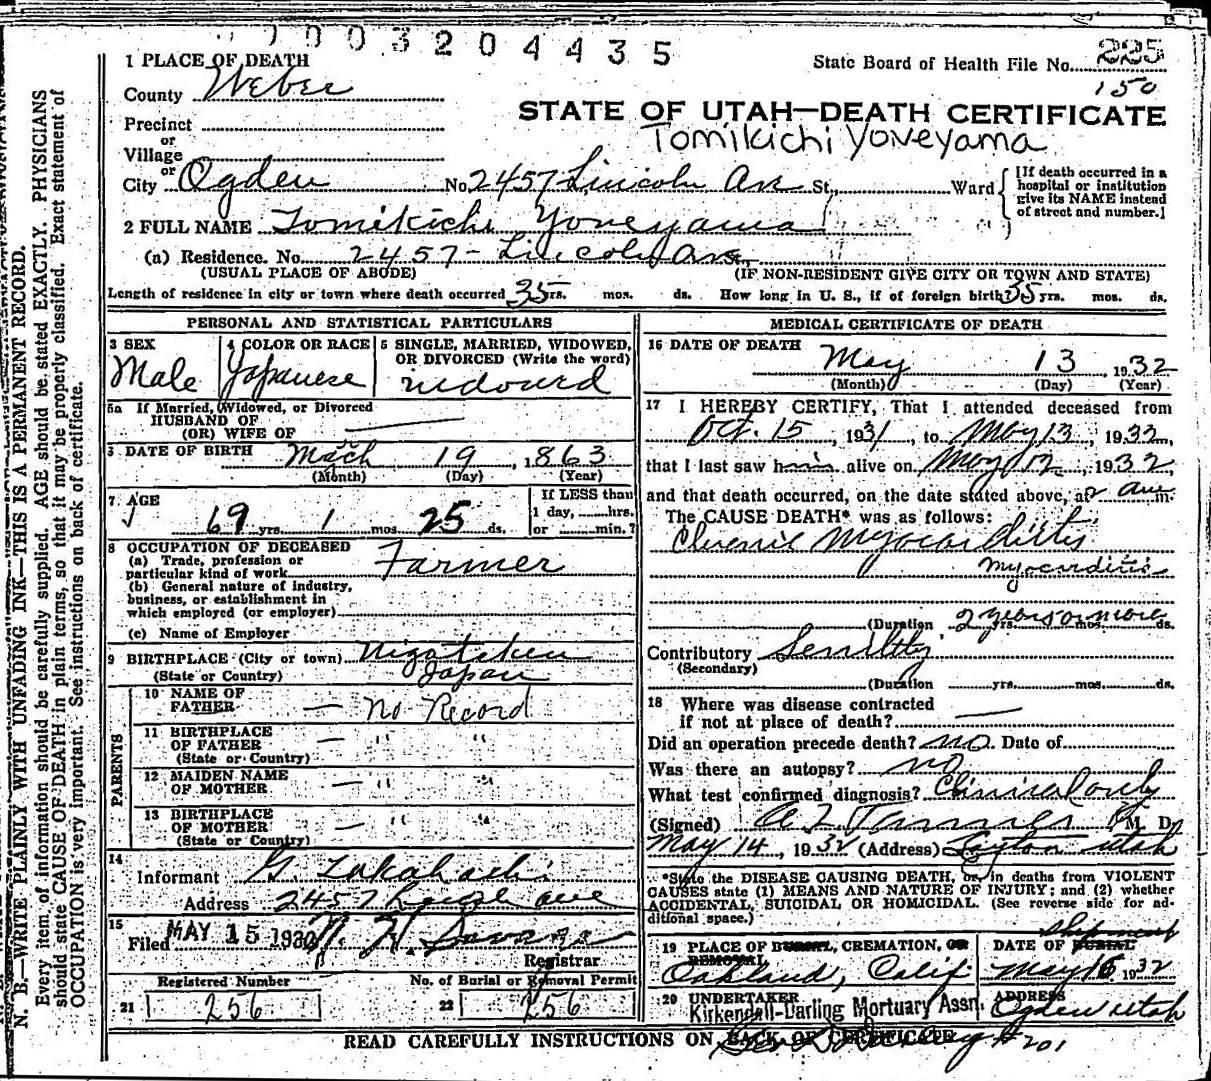 0003204435
1 PLACE OF DEATH
State Board of Health File No. 225
150
County Weber
STATE OF UTAH—DEATH CERTIFICATE
Precinct
Tomikichi Yoneyama
or
Village
or
City Ogden No. 2457 Lincoln Ave St., Ward
[If death occurred in a hospital or institution give its NAME instead of street and number.]
2 FULL NAME Tomikichi Yoneyama
(a) Residence. No. 2457 - Lincoln Ave.
(USUAL PLACE OF ABODE) (IF NON-RESIDENT GIVE CITY OR TOWN AND STATE)
Length of residence in city or town where death occurred 35 yrs. mos. ds. How long in U. S., if of foreign birth? 35 yrs. mos. ds.
PERSONAL AND STATISTICAL PARTICULARS
3 SEX
Male
4 COLOR OR RACE
Japanese
5 SINGLE, MARRIED, WIDOWED,
OR DIVORCED (Write the word)
widowed
5a If Married, Widowed, or Divorced
HUSBAND OF
(OR) WIFE OF
6 DATE OF BIRTH March 19, 1863
(Month) (Day) (Year)
7 AGE
69 yrs. 1 mos. 25 ds.
If LESS than
1 day, hrs.
or min.?
8 OCCUPATION OF DECEASED
(a) Trade, profession or
particular kind of work Farmer
(b) General nature of industry,
business, or establishment in
which employed (or employer)
(c) Name of Employer
9 BIRTHPLACE (City or town) Nigataken
(State or Country) Japan
PARENTS
10 NAME OF
FATHER — No Record
11 BIRTHPLACE
OF FATHER — " "
(State or Country)
12 MAIDEN NAME
OF MOTHER — " "
13 BIRTHPLACE
OF MOTHER — " "
(State or Country)
14
Informant G. Takahashi
Address 2457 Lincoln ave
15
Filed MAY 15 1932
Registrar
Registered Number No. of Burial or Removal Permit
21 256 22 256
MEDICAL CERTIFICATE OF DEATH
16 DATE OF DEATH May 13, 1932
(Month) (Day) (Year)
17 I HEREBY CERTIFY, That I attended deceased from
Oct. 15, 1931, to May 13, 1932,
that I last saw him alive on May 12, 1932,
and that death occurred, on the date stated above, at 2 am m.
The CAUSE DEATH* was as follows:
Chronic Myocarditis
Myocarditis
(Duration 2 years or more yrs. mos. ds.
Contributory Senility
(Secondary)
(Duration yrs. mos. ds.
18 Where was disease contracted
if not at place of death? —
Did an operation precede death? no Date of
Was there an autopsy? no
What test confirmed diagnosis? Clinical only
(Signed) A Z Tanner M. D.
May 14, 1932 (Address) Layton Utah
*State the DISEASE CAUSING DEATH, or, in deaths from VIOLENT
CAUSES state (1) MEANS AND NATURE OF INJURY; and (2) whether
ACCIDENTAL, SUICIDAL OR HOMICIDAL. (See reverse side for ad-
ditional space.)
19 PLACE OF BURIAL, CREMATION, OR
REMOVAL
Oakland, Calif.
shipment
DATE OF BURIAL
May 16 1932
20 UNDERTAKER
Kirkendall-Darling Mortuary Assn.
ADDRESS
Ogden Utah
READ CAREFULLY INSTRUCTIONS ON BACK OF CERTIFICATE
#201
N. B.—WRITE PLAINLY WITH UNFADING INK—THIS IS A PERMANENT RECORD.
Every item of information should be carefully supplied. AGE should be stated EXACTLY. PHYSICIANS
should state CAUSE OF DEATH in plain terms, so that it may be properly classified. Exact statement of
OCCUPATION is very important. See instructions on back of certificate.